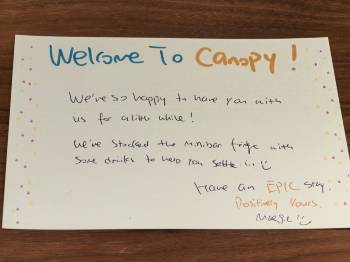 Welcome To Canopy!
We're so happy to have you with
us for a little while!
We've stocked the minibar fridge with
some drinks to help you settle in
Have an EPIC stay
Positively Yours,